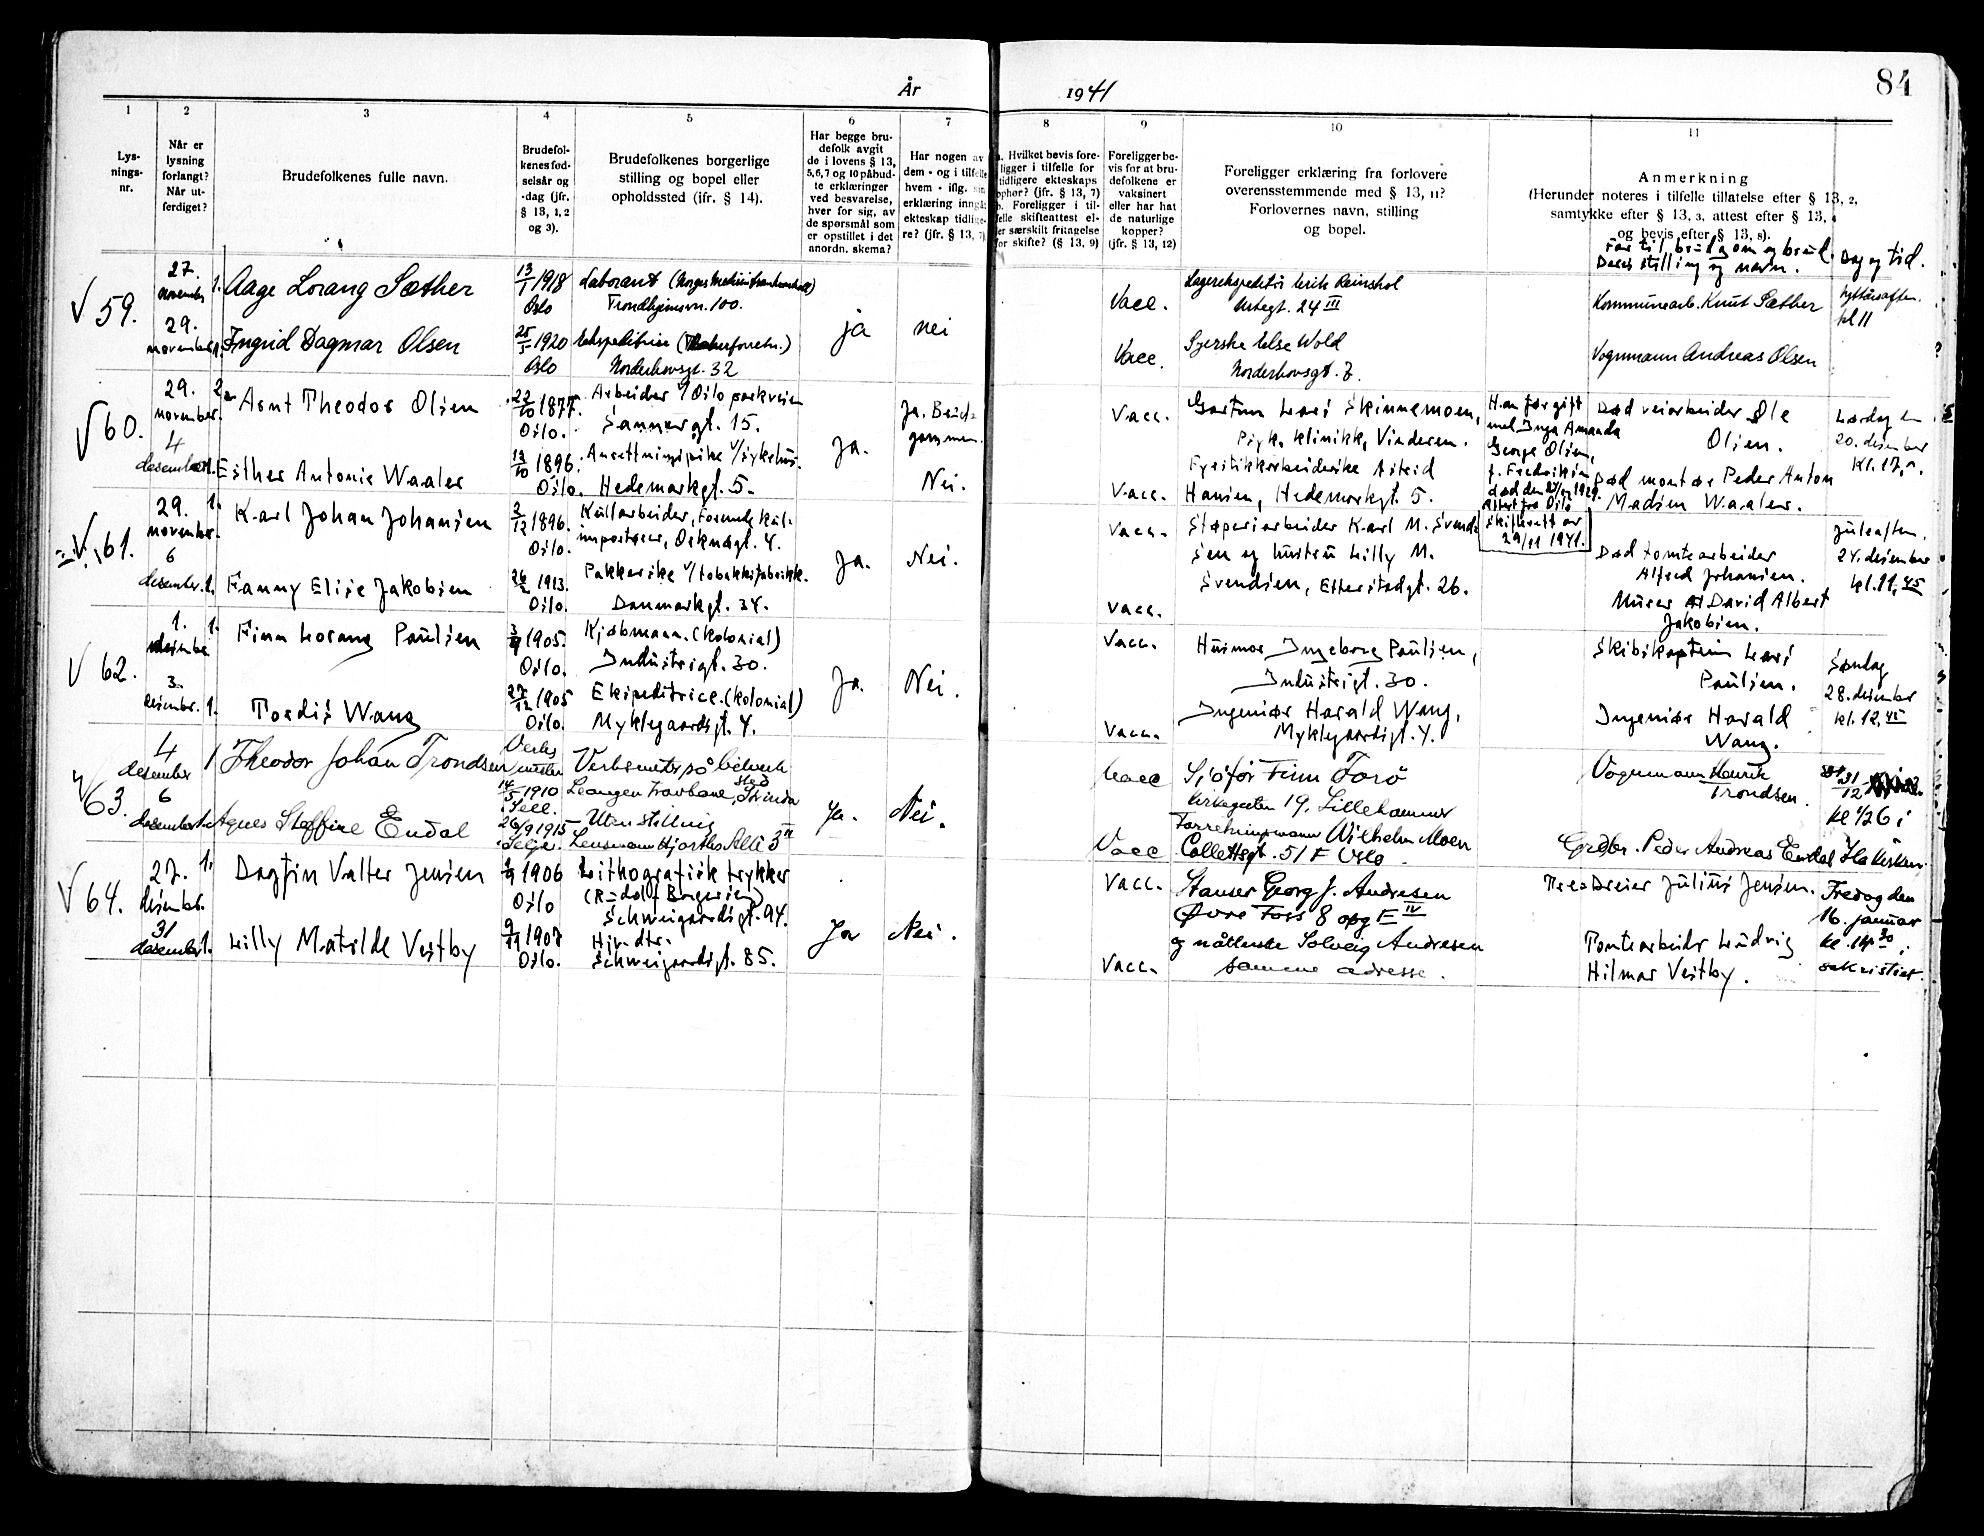 År 1941
84
1
2
3
4
5
6
7
8
9
10
11
Lys-
nings-
nr.
Når er
lysning
forlangt?
Når ut-
ferdiget?
Brudefolkenes fulle navn.
Brudefol-
kenes fød-
selsår og
-dag (jfr.
§ 13, 1, 2
og 3).
Brudefolkenes borgerlige
stilling og bopel eller
opholdssted (ifr. § 14).
Har begge bru-
defolk avgit
de i lovens § 13,
5,6,7 og 10 påbud-
te erklæringer
ved besvarelse,
hver for sig, av
de spørsmål som
er opstillet i det
anordn. skema?
Har nogen av
dem - og i tilfelle
hvem - iflg. sin
erklæring inngåt
ekteskap tidlige-
re? (jfr. § 13, 7)
a. Hvilket bevis fore-
ligger i tilfelle for
tidligere ekteskaps
ophør? (jfr. § 13, 7)
b. Foreligger i til-
felle skifteattest el-
ler særskilt fritagelse
for skifte? (§ 13, 9)
Foreligger be-
vis for at bru-
defolkene er
vaksinert
eller har hat
de naturlige
kopper?
(jfr. § 13, 12)
Foreligger erklæring fra forlovere
overensstemmende med § 13, 11?
Forlovernes navn, stilling
og bopel.
Anmerkning
(Herunder noteres i tilfelle tillatelse efter § 13, 2,
samtykke efter § 13, 3, attest efter § 13, 4
og bevis efter § 13, 8).
Far til brudgom og brud.
Deres stilling og navn.
Dag og tid.
V 59.
27.
november 1.
Aage Lorang Sæther
13/1 1918
Oslo
Laborant
Trondhjemsvn. 100.
29.
november 1.
Ingrid Dagmar Olsen
25/5 1920
Oslo
Ekspeditrise
Norderhovsgt. 32
ja
nei
Vacc.
Lagerekspeditør Erik Reinshol
Urtegt. 24 III
Kommunearb. Knut Sæther
Nyttårsaften.
kl 11
Vacc.
Syerske Else Wold
Norderhovsgt. 7.
Vognmann Andreas Olsen
V 60.
29. 2.
november.
Arnt Theodor Olsen
22/10 1877.
Oslo.
Arbeider v/ Oslo parkvesen
Sannergt. 15.
4
desember 1.
Esther Antonie Waaler
12/10 1896.
Oslo.
Ansettningspike v/sykehus.
Hedemarkgt. 5.
Ja.
Ja. Brud-
gommen.
Nei.
Vacc.
Gartner Lars Skinnemoen,
Psyk. klinikk, Vinderen.
Vacc.
Fyrstikkarbeiderske Astrid
Hansen, Hedemarkgt. 5.
Han før gift
med Inga Amanda
George Olsen,
f. Fredriksen
Attest fra Oslo
skifterett av
29/11 1941.
Død veiarbeider Ole
Olsen.
Død montør Peder Anton
Madsen Waaler.
Lørdag den
20. desember
kl. 17,
V. 61.
29. 1.
november.
Karl Johan Johansen
2/12 1896.
Oslo.
Kullarbeider, Forende kul-
importører, Orknøgt. 4.
6
desember. 1.
Fanny Elise Jakobsen
26/2 1913.
Oslo.
Pakkerske v/tobakksfabrikk.
Danmarkgt. 34.
Ja.
Nei.
Vacc.
Støperiarbeider Karl M. Svend-
sen og hustru Lilly M.
Svendsen, Etterstedgt. 26.
Vacc.
Død tomtearbeider
Alfred Johansen.
Murer David Albert
Jakobsen.
Juleaften.
24. desember
kl. 11,45
V 62.
1. 1.
desember
Finn Lorang Paulsen
1905.
Oslo.
Kjøbmann. (kolonial)
Industrigt. 30.
3.
desember. 1.
Tordis Wang
27/12 1905
Oslo.
Ekspeditrice. (kolonial)
Myklegaardsgt. 4.
Ja.
Nei.
Vacc.
Husmor Ingeborg Paulsen,
Industrigt. 30.
Vacc.
Ingeniør Harald Wang,
Myklegaardsgt. 4.
Skibskaptein Lars
Paulsen.
Ingeniør Harald
Wang.
Søndag
28. desember
kl. 12,45
V 63.
4 1
desember
Theodor Johan Trondsen
14/5 1910
Sell.
Verksmester på bilverksted
Leangen travbane, Strinda
6
desember 1.
Agnes Steffine Endal
26/9 1915
Selje.
Uten stilling
Lensmann Hjorths Allé 3 II
Ja.
Nei.
Vacc
Sjåfør Finn Forö
Kirkegaten 19, Lillehammer
Vacc
Forretningsmann Wilhelm Moen
Collettsgt. 51 F Oslo.
Vognmann Henrik
Trondsen.
Gårdbr. Peder Andreas Endal
31/12
kl 1/2 6 i
Ila kirken.
V 64.
27. 1.
desember.
Dagfin Valter Jensen
1906
Oslo
Lithografisk trykker
(Rudolf Borgersen)
Schweigaardsgt. 94.
31
desember 1.
Lilly Matilde Vestby
9/11 1907
Oslo.
Hj. dtr.
Schweigaardsgt. 85.
Ja
Nei.
Vacc.
Stanser Georg J. Andresen
Øvre Foss 8 opg E IV
og nåtlerske Solveig Andresen
Vacc.
samme adresse.
Tredreier Julius Jensen.
Tomtearbeider Ludvig
Hilmar Vestby.
Fredag den
16. januar
kl. 14 30 i
sakristiet.